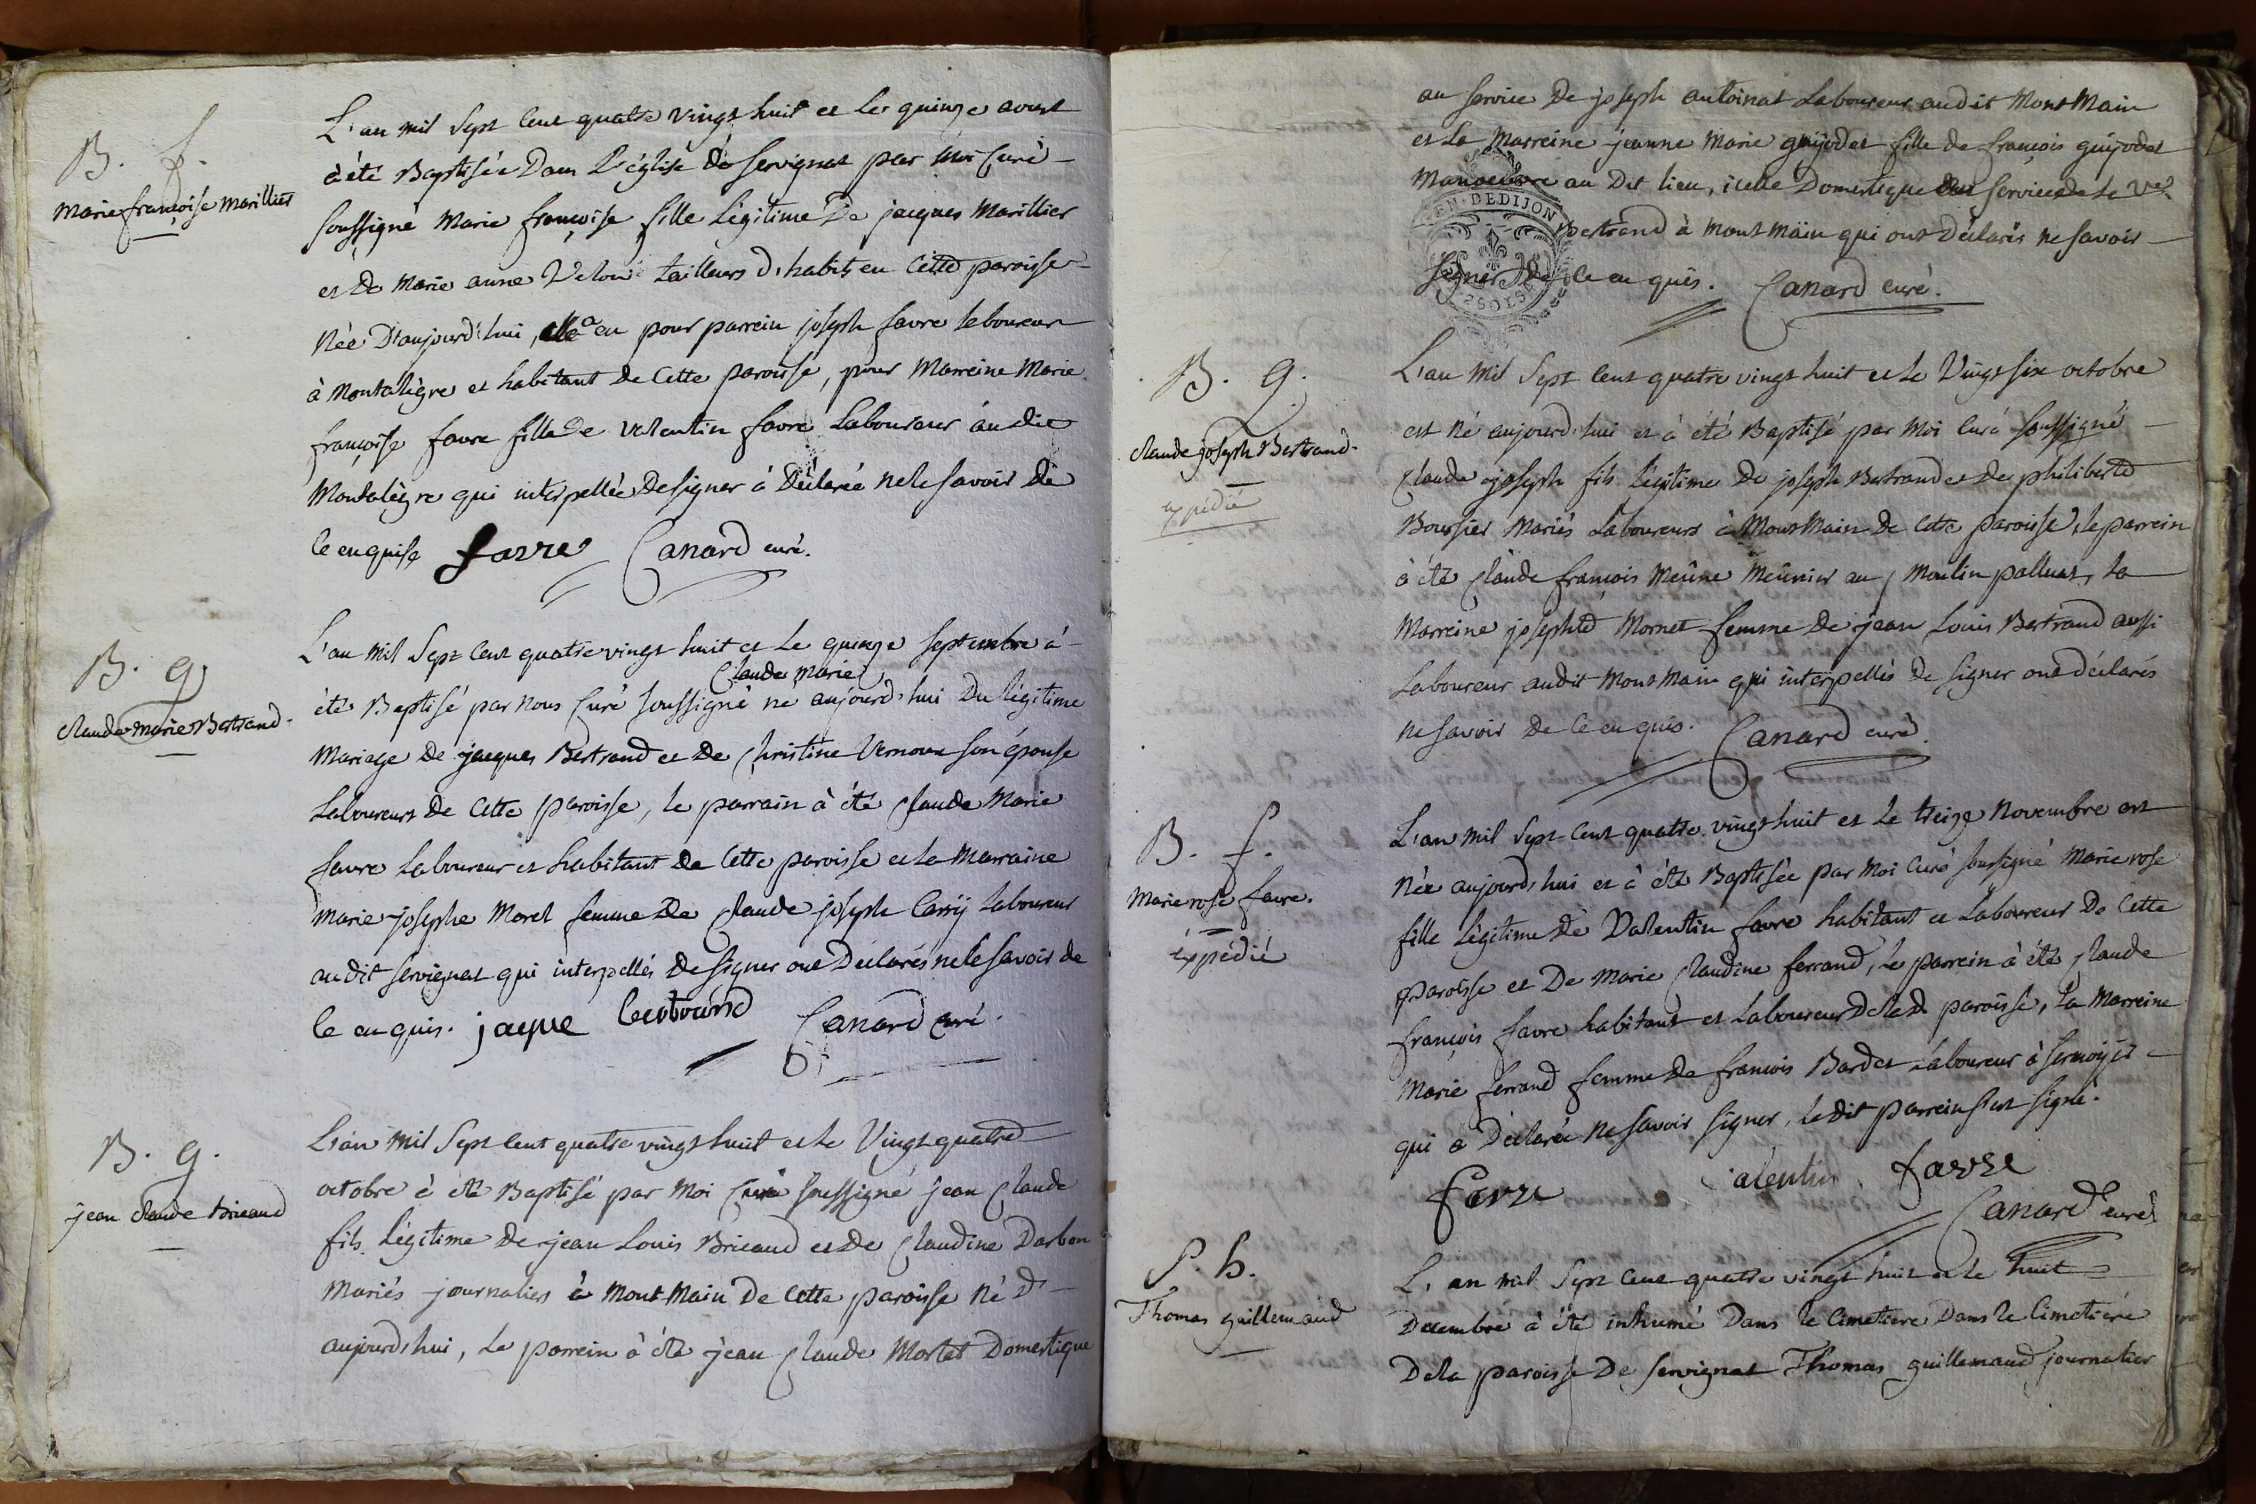 B. f.
Marie françoise Marillier
L'an mil Sept cent quatre vingt huit et le quinze aoust
à été Baptisée Dans L'église de Servignat par Moi Curé
soussigné Marie françoise fille Légitime De jacques Marillier
et De Marie anne Velon tailleurs d'habits en Cette paroisse
Née D'aujourd'hui, elle a eu pour parrein joseph favre laboureur
à Montalègre et habitant de Cette paroisse, pour Marreine Marie
françoise favre fille De valentin favre Laboureur audit
Montalègre qui interpellée De signer à Déclarée ne le savoir De
Ce enquise favre Canard curé.
B. g
claude Marie Bertrand.
L'an mil Sept Cent quatre vingt huit et Le quinze Septembre à
Claude Marie
été Baptisé par nous Curé soussigné né aujourd'hui Du légitime
Mariage De jacques Bertrand et De Christine Vernoux son épouse
Laboureurs De Cette paroisse, le parrain à été Claude Marie
favre Laboureur et habitant De Cette paroisse et la Marraine
Marie josephe Morel femme De Claude joseph Carrÿ Laboureur
audit Servignat qui interpellés De signer ont Déclarés ne le savoir de
Ce enquis. jaque Canard curé.
B. g.
jean claude Bricaud
L'an Mil Sept Cent quatre vingt huit et le Vingt quatre
octobre à été Baptisé par Moi Curé soussigné jean Claude
fils Légitime De jean Louis Bricaud et De Claudine Darbon
Mariés journaliers à Mont Main De Cette paroisse Né D'
aujourd'hui, Le parrein à été jean Claude Mortet Domestique
au service De joseph antoinat Laboureur audit Mont Main
et La Marreine jeanne Marie guÿodet fille De françois guÿodet
Manoeuvre au Dit lieu, icelle Domestique au service de la Ve
Bertrand à Mont Main qui ont Déclarés ne savoir
signer De Ce enquis. Canard curé.
GEN. DE DIJON
B. g.
claude joseph Bertrand.
expédié
L'an Mil Sept Cent quatre vingt huit et le Vingt six octobre
est Né aujourd'hui et à été Baptisé par Moi Curé soussigné
Claude joseph fils Légitime De joseph Bertrand et De philiberte
Boussier Mariés Laboureurs à Mont Main De Cette paroisse, le parrein
à été Claude françois Meûne Meûnier au Moulin palluat, La
Marreine josephte Mornet femme De jean Louis Bertrand aussi
Laboureur audit Mont Main qui interpellés De signer ont déclarés
ne savoir De Ce enquis. Canard curé.
B. f.
Marie rose favre.
expédié
L'an mil Sept Cent quatre vingt huit et Le treize Novembre est
Née aujourd'hui et à été Baptisée par Moi Curé soussigné Marie rose
fille Légitime De Valentin favre habitant et Laboureur De Cette
paroisse et De Marie Claudine ferrand, Le parrein à été Claude
françois favre habitant et Laboureur De lad paroisse, La Marreine
Marie ferrand femme De françois Bardet Laboureur à Sermoÿer
qui a Déclarée Ne savoir signer, ledit parrein s'est signé.
favre valentin favre
Canard curé
S. h.
Thomas guillemaud
L'an mil Sept Cent quatre vingt huit et le huit
Decembre à été inhumé Dans le Cimetiere Dans le Cimetiére
De la paroisse De Servignat Thomas guillemaud journalier